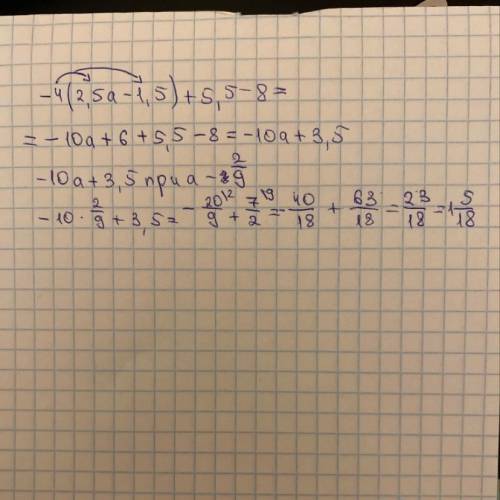 -4(2,5a-1,5)+5,5-8=
=-10a+6+5,5-8=-10a+3,5
-10a+3,5 при a - 2/9
-10·2/9+3,5=-20/9+7/2=40/18+63/18=23/18=1 5/18